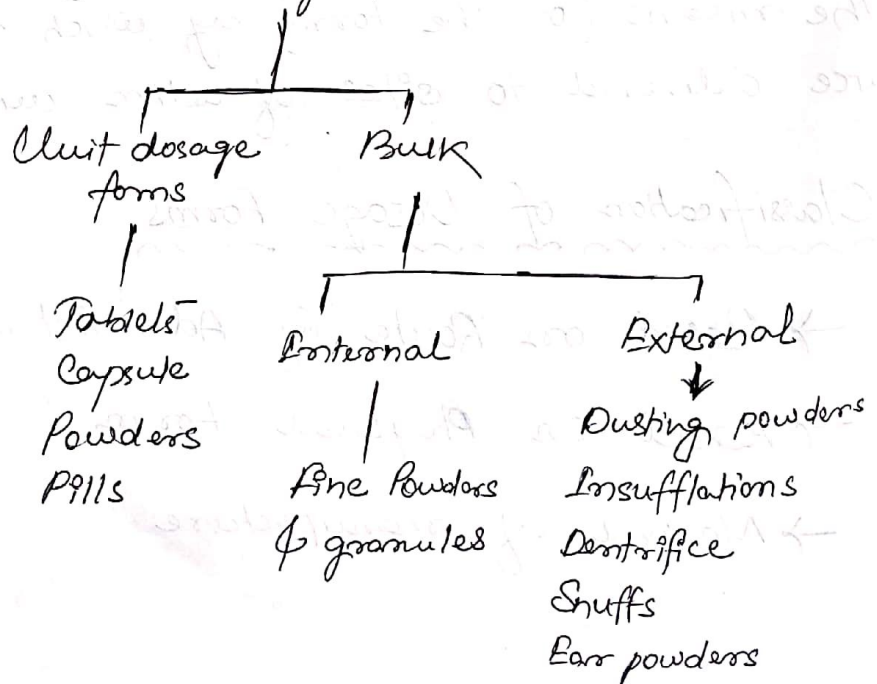 Unit dosage
foms
Bulk
Tablets
Capsule
Powders
Pills
Internal
Fine Powders
& granules
External
Dusting powders
Insufflations
Dentrifice
Snuffs
Ear powders
Classification of Dosage forms